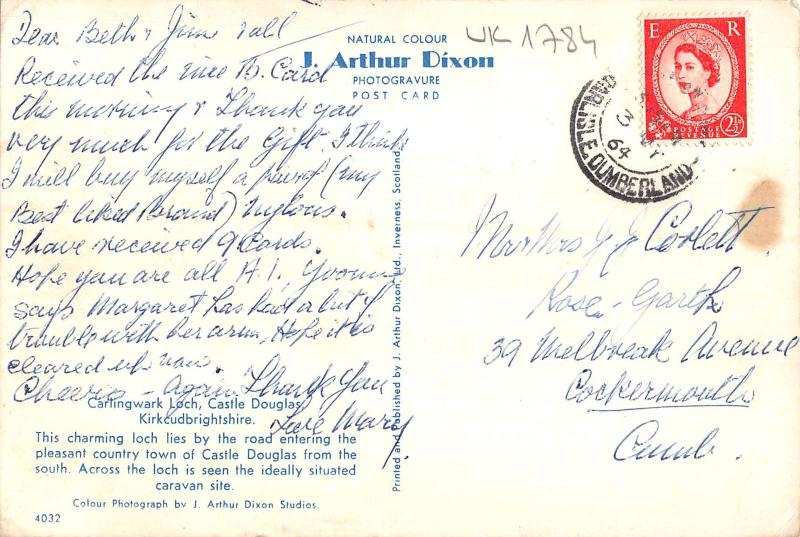 Dear Beth & Jim & all
Received the nice B. Card
this morning & thank you
very much for the Gift. I think
I will buy myself a pair of (my
Best liked Brand) Nylons.
I have received 9 Cards.
Hope you are all A.1, Yvonne
says Margaret has had a lot of
trouble with her arm, Hope it is
cleared up now.
Cheerio - Again Thank you
Love Mary
Carlingwark Loch, Castle Douglas
Kirkcudbrightshire.
This charming loch lies by the road entering the
pleasant country town of Castle Douglas from the
south. Across the loch is seen the ideally situated
caravan site.
Colour Photograph by J. Arthur Dixon Studios.
4032
NATURAL COLOUR
J. Arthur Dixon
PHOTOGRAVURE
POST CARD
UK 1784
Printed and Published by J. Arthur Dixon, Ltd., Inverness, Scotland
E R
POSTAGE
REVENUE
2½D
CARLISLE CUMBERLAND
3
64
Mr & Mrs J J Corlett
Rose-Garth
39 Melbreak Avenue
Cockermouth
Cumb.